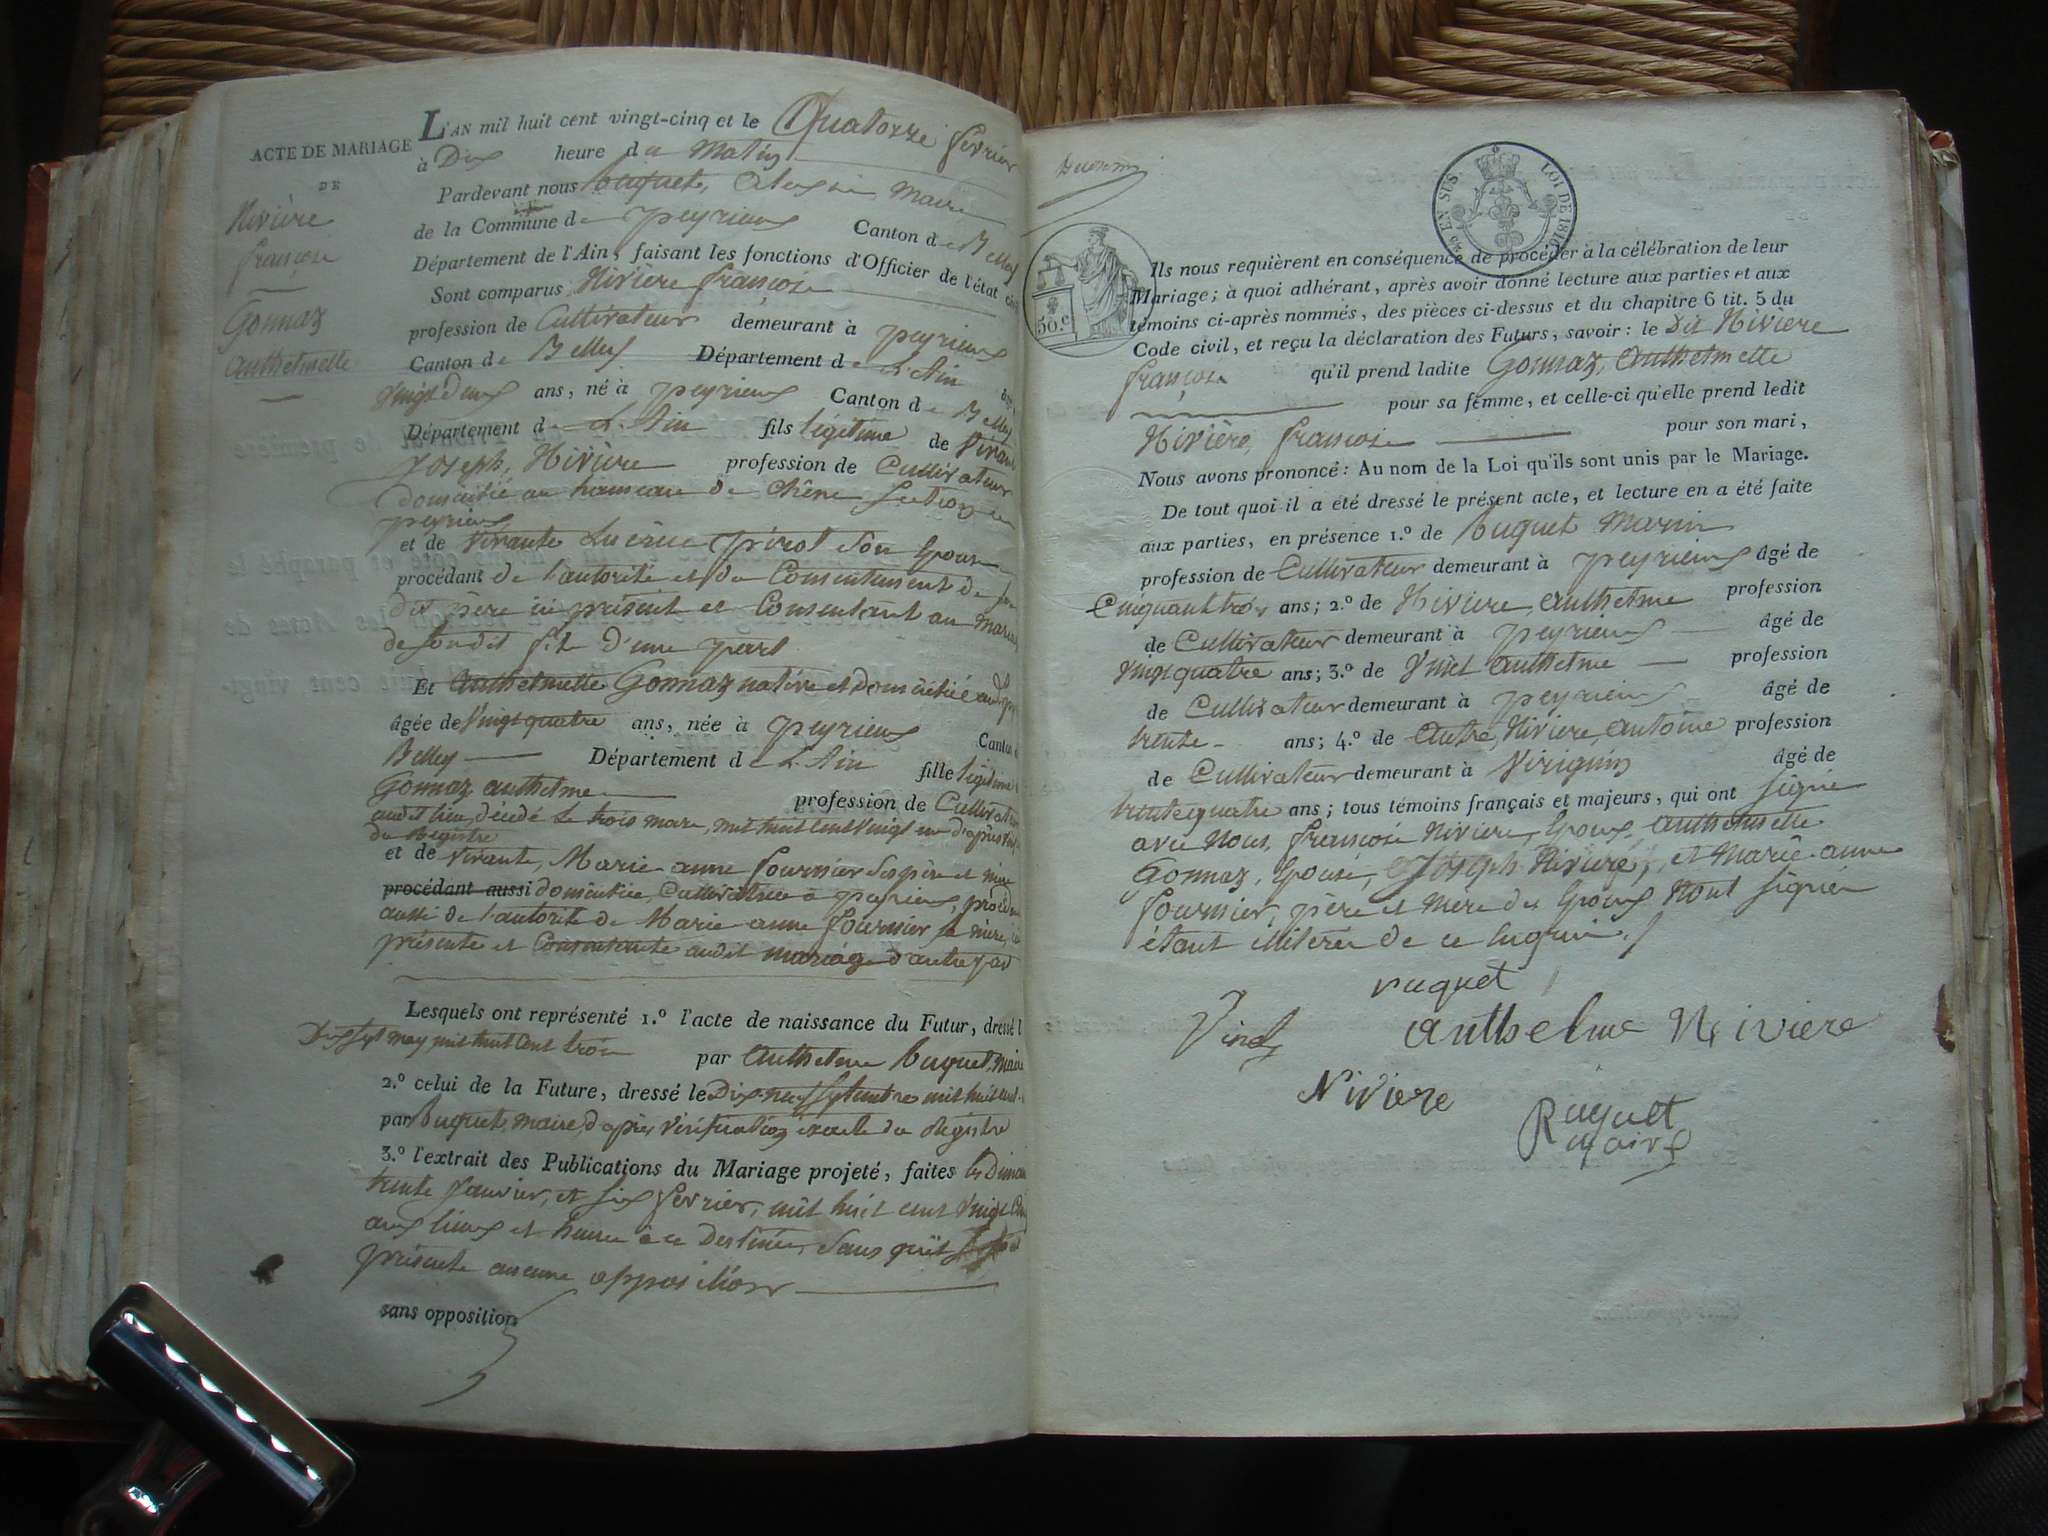 ACTE DE MARIAGE
DE
Nivière
françois
Gonnaz
Anthelmette
L'AN mil huit cent vingt-cinq et le Quatorze fevrier
à Dix heure du Matin
Pardevant nous buquet, Maire
de la Commune de peyrieux Canton de Belley
Département de l'Ain, faisant les fonctions d'Officier de l'état civil
Sont comparus Nivière françois
profession de Cultivateur demeurant à peyrieux
Canton de Belley Département de L'Ain âgé
Vingt deux ans, né à peyrieux Canton de Belley
Département de L'Ain fils légitime de Vivant
Joseph, Nivière profession de Cultivateur
domicilié au hameau de Chêne Section de
peyrieux
et de Vivante Lucrece pirot Son Epouse
procédant de l'autorité et du Consentement de son
dit père ici présent et Consentant au Mariage
de Son dit fils D'une part
Et Anthelmette Gonnaz native et domiciliée audit
âgée de Vingt quatre ans, née à peyrieux Canton
Belley Département de L'Ain fille légitime
Gonnaz anthelme profession de Cultivateur
audit lieu, décédé le trois mars, mil huit cent Vingt un d'après
du Registre
et de Vivante, Marie anne fournier Ses père et mère
procédant aussi domiciliée, Cultivatrice à peyrieux, procédant
aussi de l'autorité de Marie anne fournier sa mère, ici
présente et Consentante audit mariage d'autre part
Lesquels ont représenté 1.º l'acte de naissance du Futur, dressé l
Dix Sept may mil huit Cent trois par Anthelme buquet, maire
2.º celui de la Future, dressé le Dix neuf Septembre mil huit cent
par buquet, maire, d'après Vérification exacte du Régistre
3.º l'extrait des Publications du Mariage projeté, faites les Diman
trente Janvier, et Six fevrier, mil huit cent Vingt Cinq
aux lieux et heure à ce Destinée, Sans qu'il
présente aucune opposition
sans opposition
50.c
EN SUS LOI DE 1816
Ils nous requièrent en conséquence de procéder à la célébration de leur
Mariage; à quoi adhérant, après avoir donné lecture aux parties et aux
témoins ci-après nommés, des pièces ci-dessus et du chapitre 6 tit. 5 du
Code civil, et reçu la déclaration des Futurs, savoir: le dit Nivière
françois qu'il prend ladite Gonnaz, Anthelmette
pour sa femme, et celle-ci qu'elle prend ledit
Nivière, françois pour son mari,
Nous avons prononcé: Au nom de la Loi qu'ils sont unis par le Mariage.
De tout quoi il a été dressé le présent acte, et lecture en a été faite
aux parties, en présence 1.º de buquet Marin
profession de Cultivateur demeurant à peyrieux âgé de
Cinquant trois ans; 2.º de Niviere, anthelme profession
de Cultivateur demeurant à peyrieux âgé de
Vingt quatre ans; 3.º de Vinet Anthelme profession
de Cultivateur demeurant à peyrieux âgé de
trente ans; 4.º de Autre, Niviere, Antoine profession
de Cultivateur demeurant à Virignin âgé de
trente quatre ans; tous témoins français et majeurs, qui ont signé
avec Nous, françois Niviere, Epoux, Anthelmette
Gonnaz, Epouse, Joseph Niviere, et Marie anne
fournier, père et mere des Epoux N'ont Signé
étant illiterés de ce enquis.
ruquet
Vinet
anthelme Niviere
Niviere
Ruquet
maire